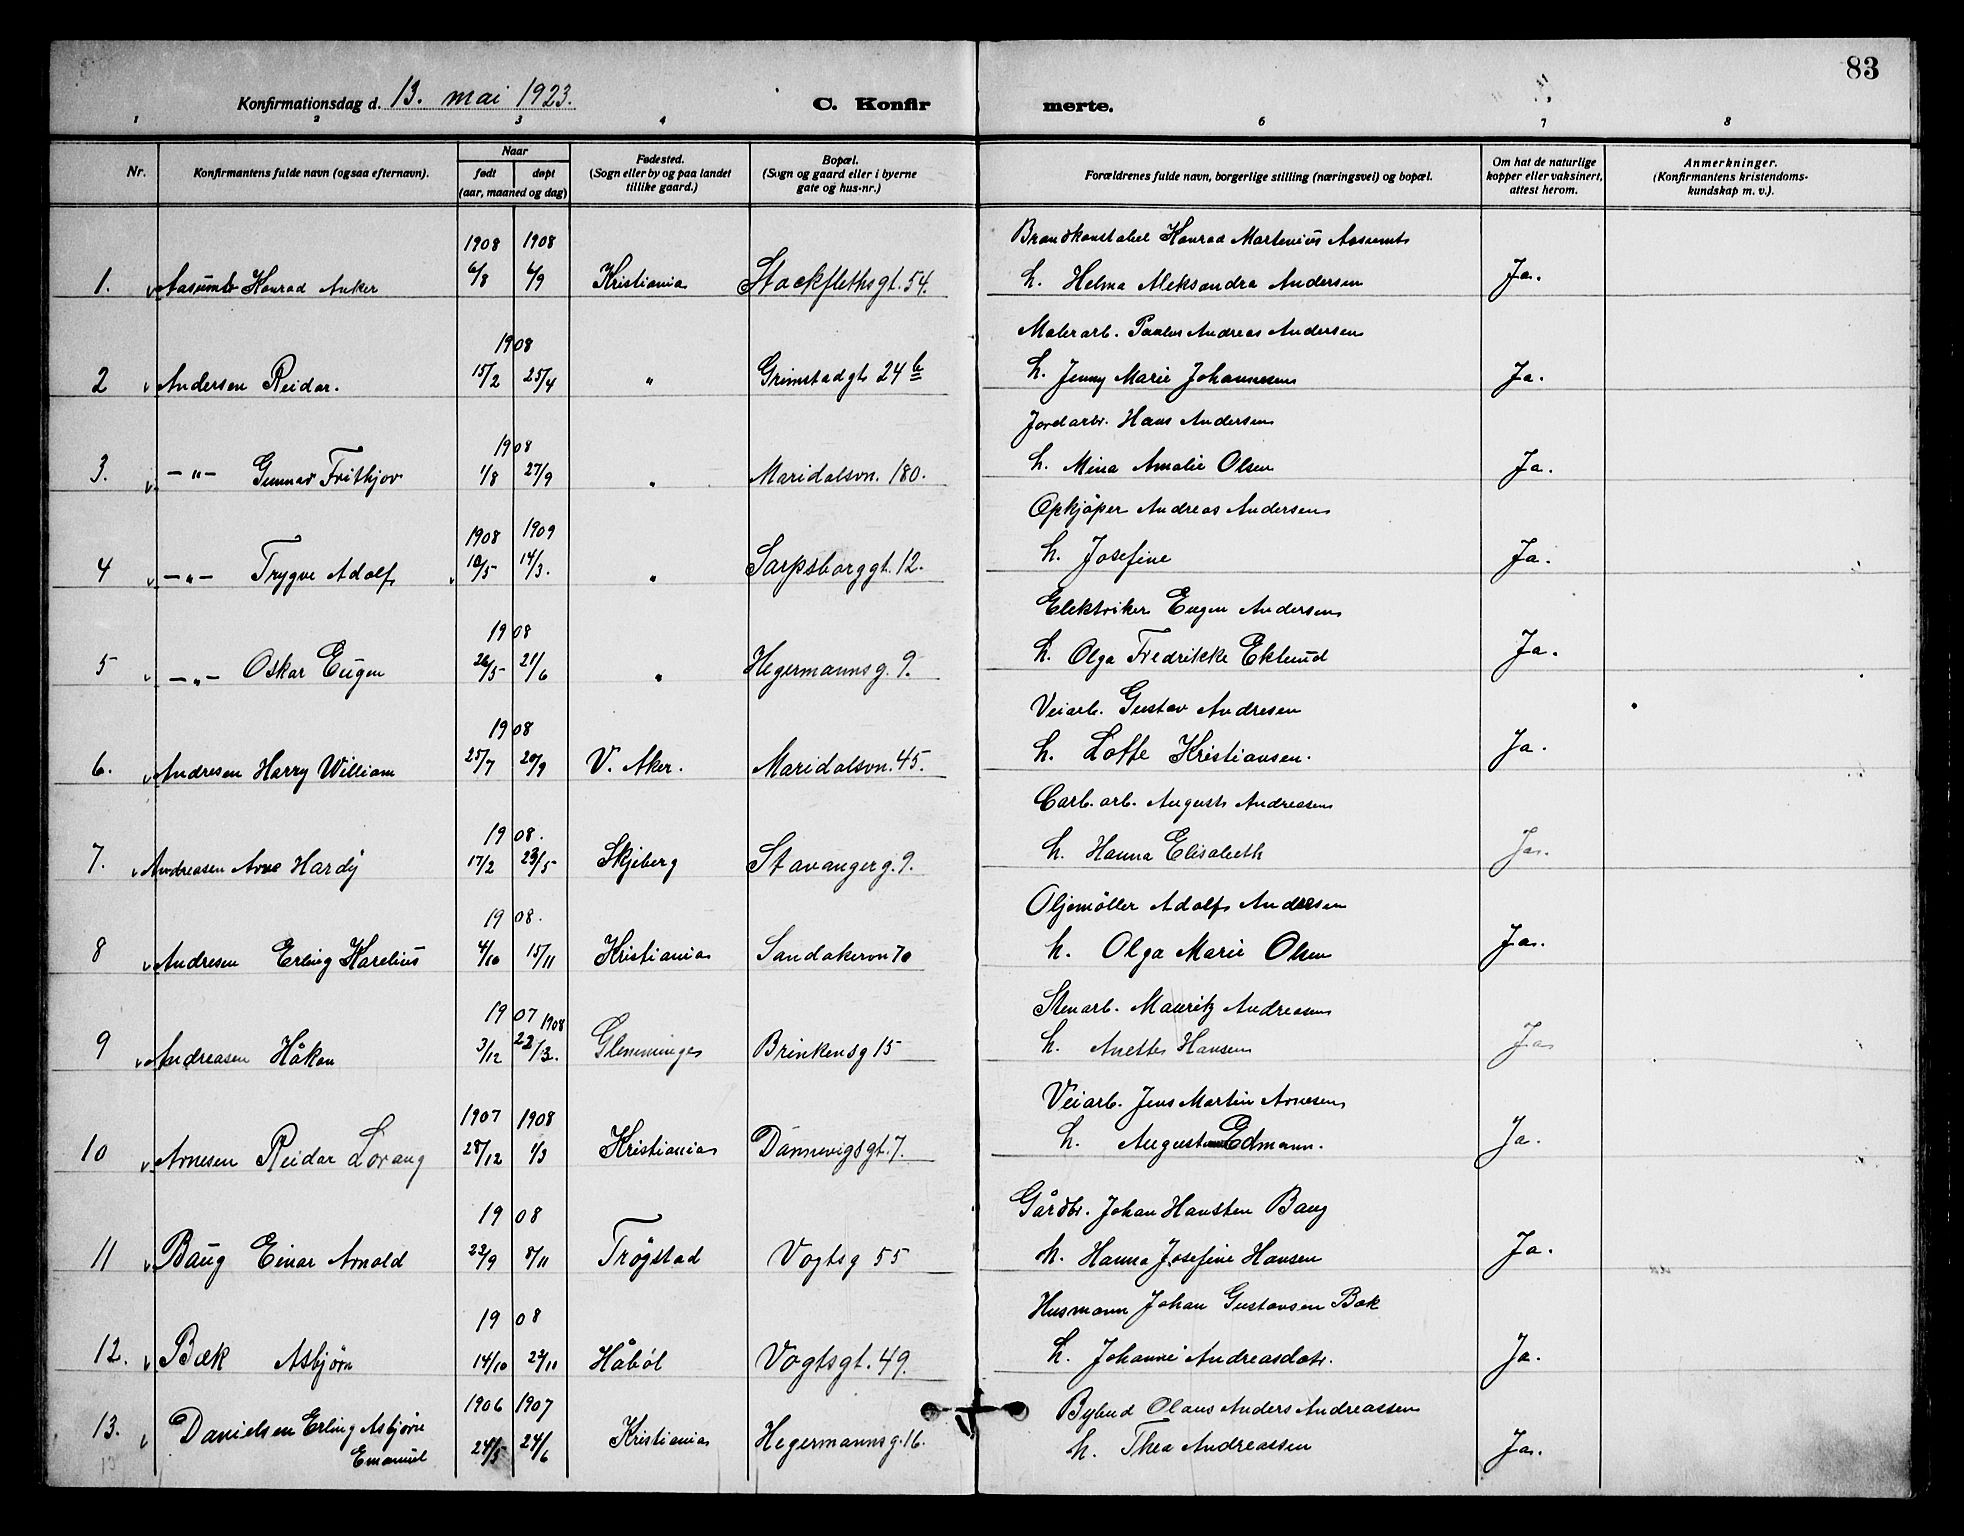 83
Konfirmationsdag d. 13. mai 1923. C. Konfir merte.
1 2 3 4 6 7 8
Nr. Konfirmantens fulde navn (ogsaa efternavn). Naar født døpt (aar, maaned og dag) Fødested. (Sogn eller by og paa landet tillike gaard.) Bopæl. (Sogn og gaard eller i byerne gate og hus-nr.) Forældrenes fulde navn, borgerlige stilling (næringsvei) og bopæl. Om hat de naturlige kopper eller vaksinert, attest herom. Anmerkninger. (Konfirmantens kristendomskundskap m. v.).
1908 1908 Brandkonstabel Konrad Martenius Aasumb
1. Aasumb Konrad Anker 6/8 6/9 Kristiania Stockflethsgt. 54. h. Helma Aleksandra Andersen Ja.
1908 Malerarb. Paulus Andreas Andersen
2 Andersen Reidar. 15/2 25/4 " Grimstadgt 24 b h. Jenny Marie Johannesen Ja.
1908 Jordarb. Hans Andersen
3. -"- Gunnar Frithjov 1/8 27/9 " Maridalsvn. 180. h. Mina Amalie Olsen Ja.
1908 1909 Opkjøper Andreas Andersen
4 -"- Trygve Adolf 10/5 14/3. " Sarpsborggt. 12. h. Josefine Ja.
1908 Elektriker Eugen Andersen
5 -"- Oskar Eugen 26/5 21/6 " Hegermannsg. 9. h. Olga Fredrikke Eklund Ja.
1908 Veiarb. Gustav Andresen
6. Andresen Harry William 25/7 20/9 V. Aker. Maridalsvn. 45. h. Lotte Kristiansen. Ja.
1908. Carb. arb. August Andreasen
7. Andreasen Arne Hardy 17/2 23/5 Skjeberg Stavangerg. 9. h. Hanna Elisabeth Ja.
1908. Oljemøller Adolf Andresen
8 Andresen Erling Karelius 4/10 15/11 Kristiania Sandakervn 70 h. Olga Marie Olsen Ja.
1907 1908 Stenarb. Mauritz Andreasen
9 Andreasen Håkon 3/12 22/3. Glemminge Brinkensg 15 h. Anette Hansen Ja
1907 1908 Veiarb. Jens Martin Arnesen
10 Arnesen Reidar Lorang 28/12 1/3 Kristiania Dannevigsgt. 7. h. Augusta Edmann. Ja.
1908 Gårdbr. Johan Hansten Baug
11 Baug Einar Arnold 22/9 8/11 Trøgstad Vogtsg 55 h. Hanna Josefine Hansen Ja.
1908 Husmann Johan Gustavsen Bæk
12. Bæk Asbjørn 14/10 22/11 Håbøl Vogtsgt. 49. h. Johanne Andreasdatr. Ja.
1906 1907 Bybud Olaus Anders Andreassen
13. Danielsen Erling Asbjørn 24/5 24/6 Kristiania Hegermannsg. 16. h. Thea Andreassen Ja.
Emanuel
13